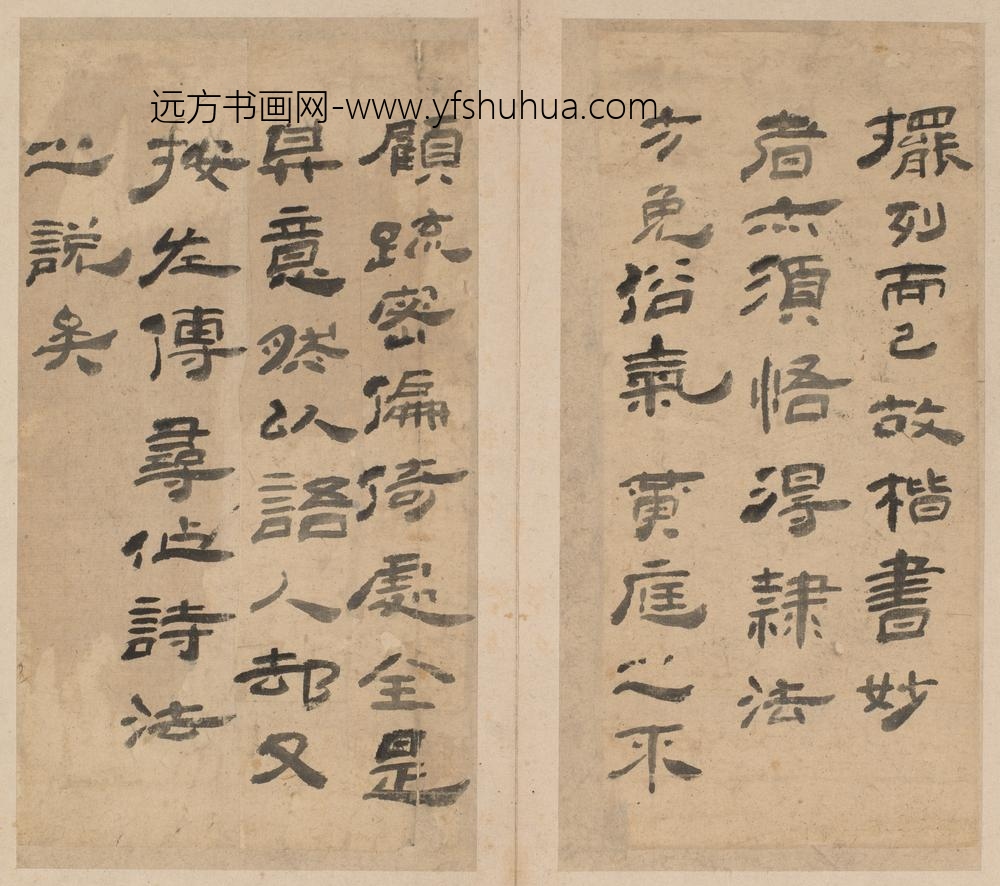 远方书画网-www.yfshuhua.com
擺列而已故楷書妙
者亦須悟得隸法
方免俗氣黃庭之不
顧疏密偏倚處全是
其意然以語人却又
按左傳尋作詩法
之說矣